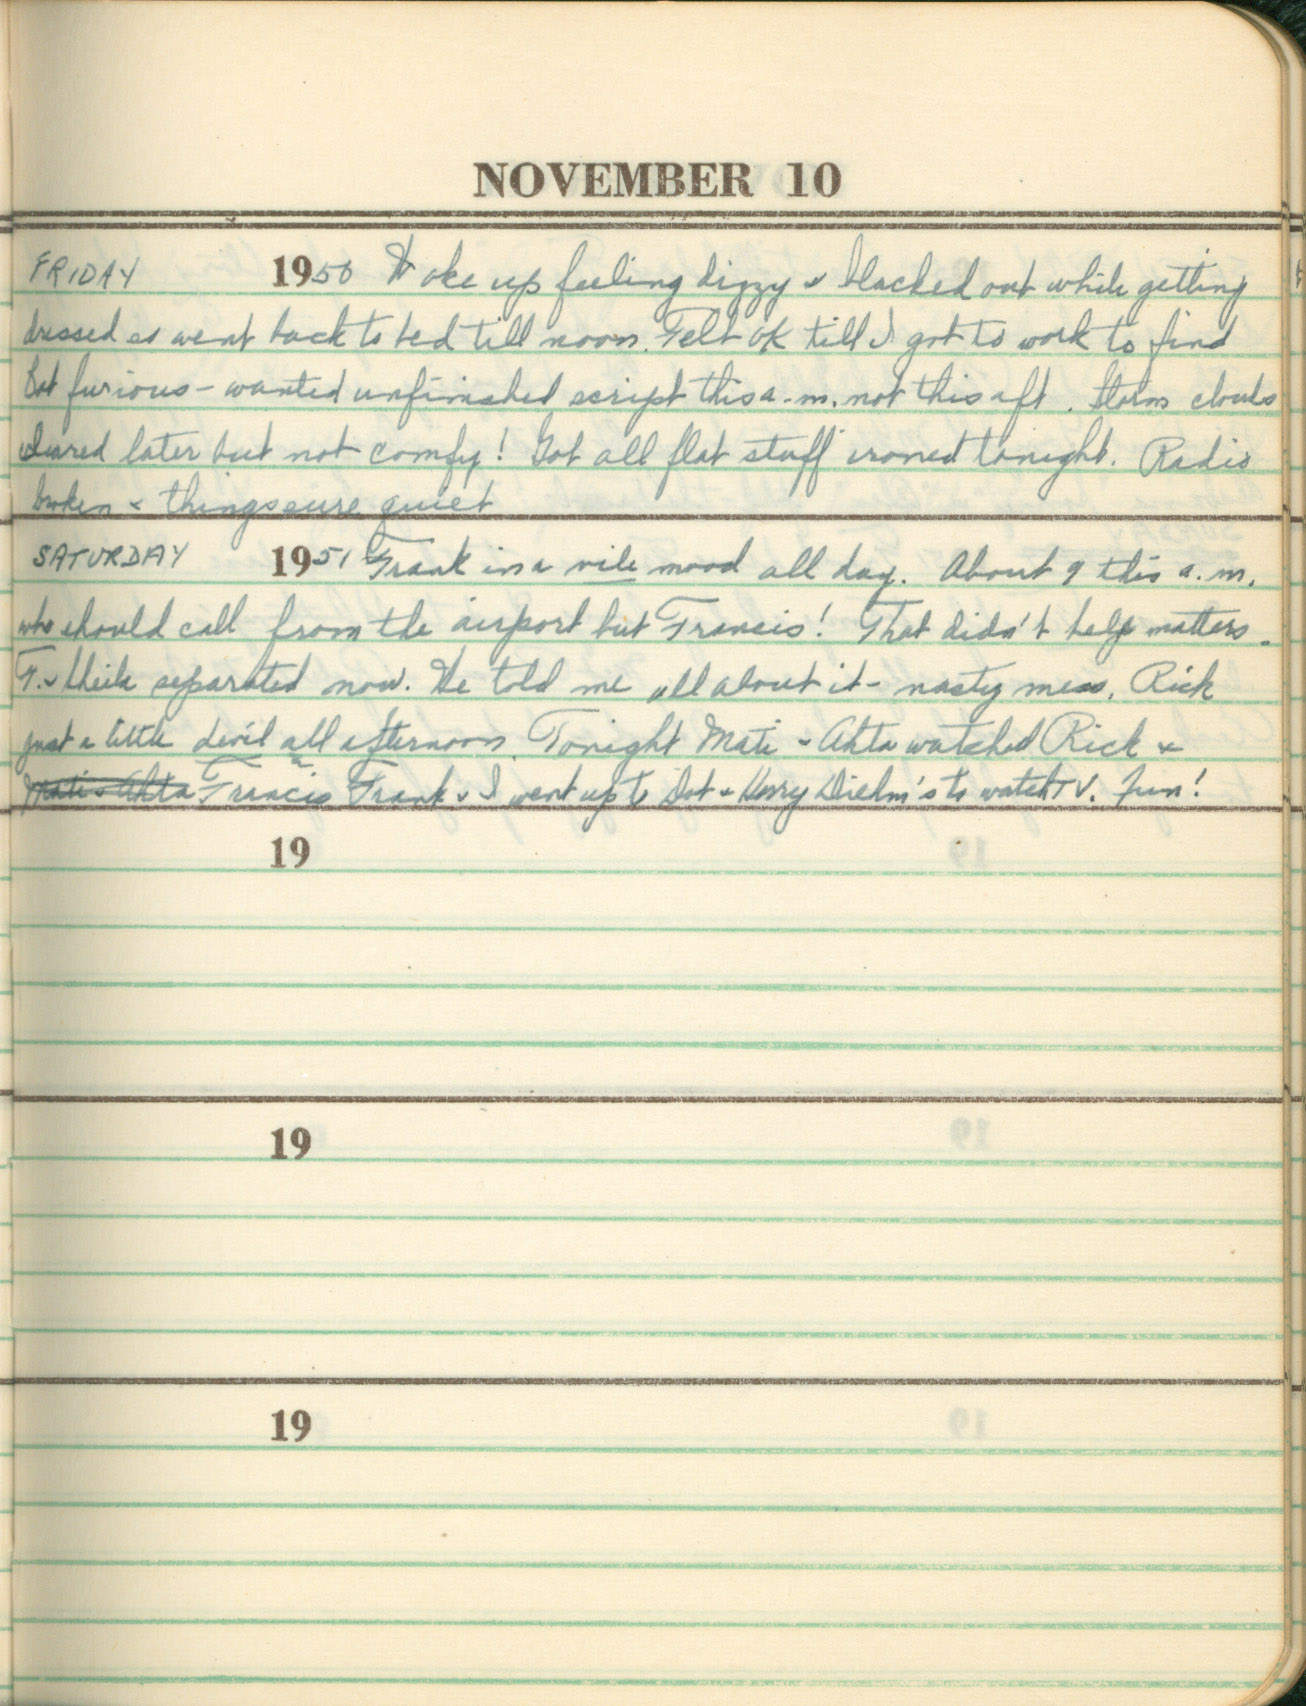 NOVEMBER 10
FRIDAY 1950 Woke up feeling dizzy & blacked out while getting
dressed so went back to bed till noon. Felt OK till I got to work to find
furious - wanted unfinished script this a.m. not this aft. Storm clouds
cleared later but not comfy! Got all flat stuff ironed tonight. Radio
broken & things sure quiet
SATURDAY 1951 Frank in a vile mood all day. About 9 this a.m.
who should call from the airport but Francis! That didn't help matters.
F. & Sheila separated now. He told me all about it - nasty mess. Rick
just a little devil all afternoon Tonight Mati & Ahta watched Rick &
Mati & Ahta Francis Frank & I went up to Dot & Harry Diehm's to watch TV. Fun!
19
19
19